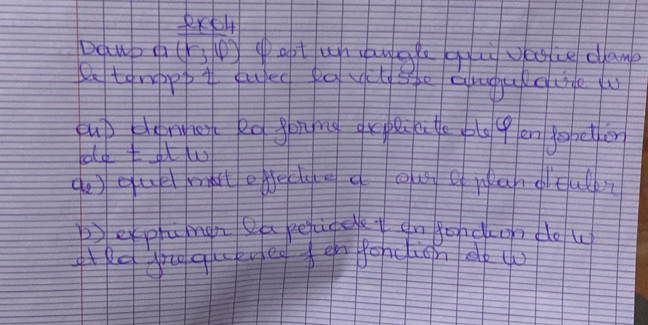 exo4
Dans a(r,φ) φ est un angle qui varie dans
le temps t avec la vitesse angulaire w
a1) donner la forme explicite de φ en fonction
de t et w
a2) quel mvt effectue a sur le plan d'euler
b) exprimer la periode t en fonction de w
et la frequence f en fonction de w